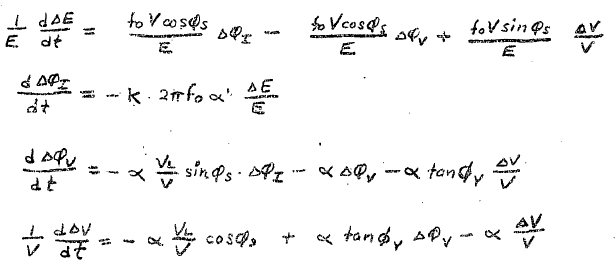 1/E dΔE/dt = f₀Vcosφ_S/E Δφ_I − f₀Vcosφ_S/E Δφ_V + f₀Vsinφ_S/E ΔV/V
dΔφ_I/dt = −k·2πf₀α' ΔE/E
dΔφ_V/dt = −α V_L/V sinφ_S·Δφ_I − αΔφ_V − α tanϕ_y ΔV/V
1/V dΔV/dt = −α V_L/V cosφ_s + α tanϕ_y Δφ_V − α ΔV/V